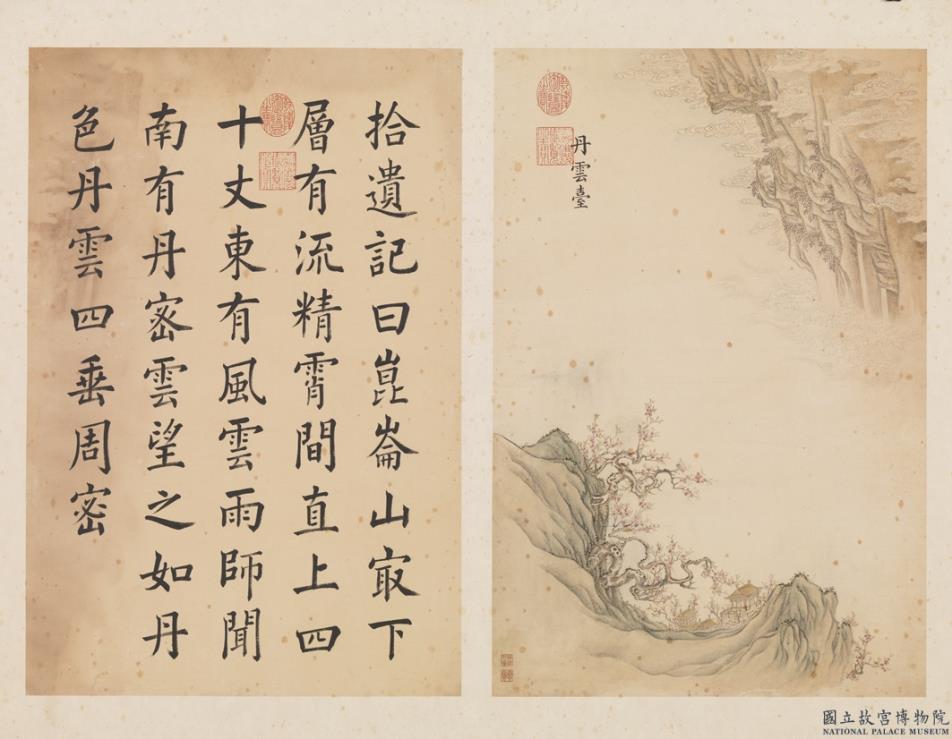 丹雲臺
拾遺記曰崑崙山㝡下
層有流精霄間直上四
十丈東有風雲雨師聞
南有丹密雲望之如丹
色丹雲四垂周密
國立故宮博物院
NATIONAL PALACE MUSEUM